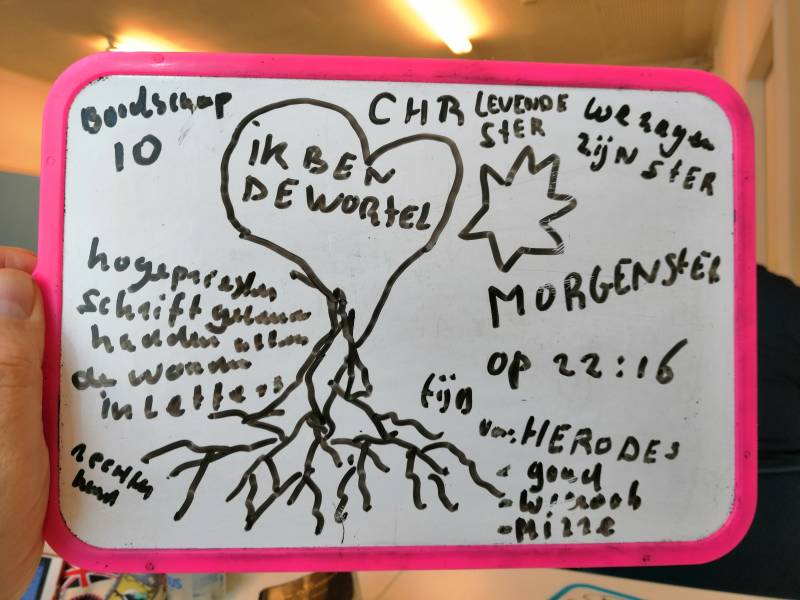 Boodschap
10
iK BEN
DE WORTEL
CHR
LEVENDE
StER
We zagen
zijN StER
MORGENStER
op 22:16
hogepriesters
Schriftgeleerden
hadden alleen
de woorden
in Letters
rechter
hand
tijd
van HERODES
- goud
- Wierook
- Mirre